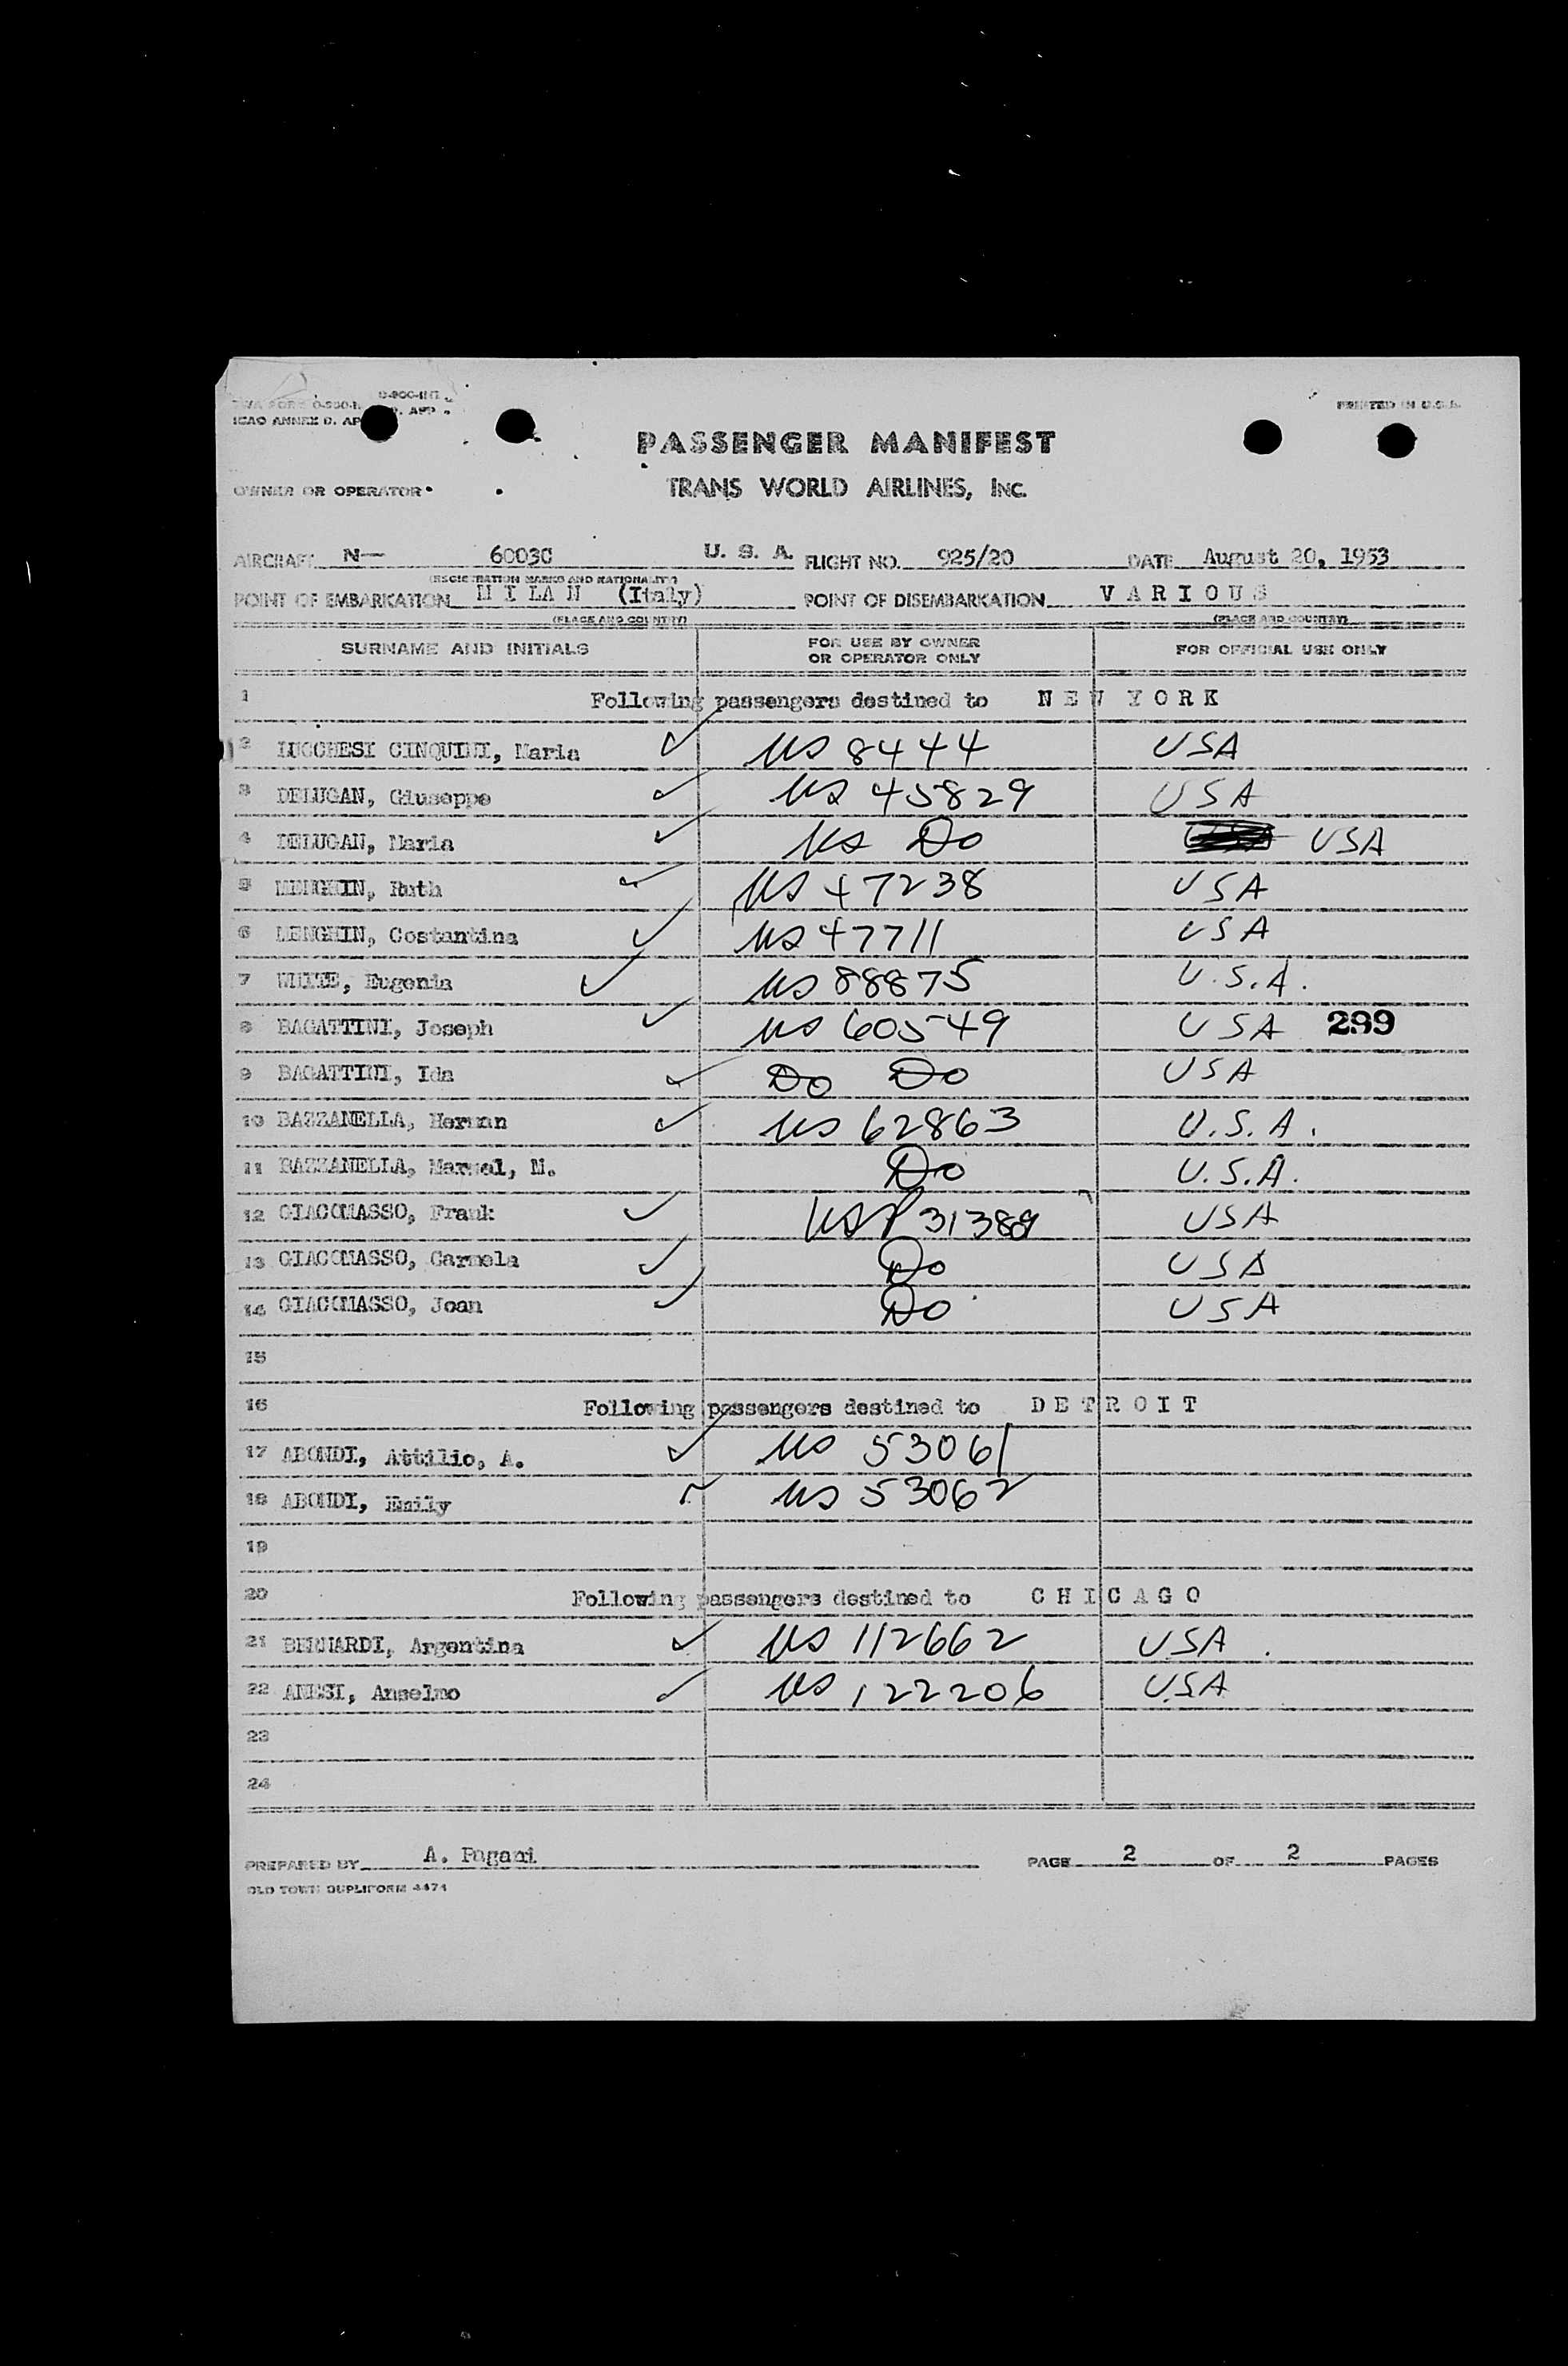 ICAO ANNEX 9. AP
PRINTED IN U.S.A.
PASSENGER MANIFEST
OWNER OR OPERATOR TRANS WORLD AIRLINES, INC.
AIRCRAFT N— 6003C U. S. A. FLIGHT NO. 925/20 DATE August 20, 1953
(REGISTRATION MARKS AND NATIONALITY)
POINT OF EMBARKATION M I L A N (Italy) POINT OF DISEMBARKATION V A R I O U S
(PLACE AND COUNTRY) (PLACE AND COUNTRY)
SURNAME AND INITIALS FOR USE BY OWNER OR OPERATOR ONLY FOR OFFICIAL USE ONLY
1 Following passengers destined to N E W Y O R K
2 LUCCHESI CINQUINI, Maria ✓ US 8444 USA
3 DELUGAN, Giuseppe ✓ US 45829 USA
4 DELUGAN, Maria ✓ US Do USA
5 MENGHIN, Ruth ✓ US 47238 USA
6 LENGHIN, Costantina ✓ US 47711 USA
7 WHITE, Eugenia ✓ US 88875 U.S.A.
8 BAGATTINI, Joseph ✓ US 60549 USA 299
9 BAGATTINI, Ida ✓ Do Do USA
10 BAZZANELLA, Herman ✓ US 62863 U.S.A.
11 BAZZANELLA, M. Do U.S.A.
12 GIACOMASSO, Frank ✓ USP 31389 USA
13 GIACOMASSO, Carmela ✓ Do USA
14 GIACOMASSO, Joan ✓ Do USA
15
16 Following passengers destined to D E T R O I T
17 ABONDI, Attilio, A. ✓ US 53061
18 ABONDI, Emily ✓ US 53062
19
20 Following passengers destined to C H I C A G O
21 BERNARDI, Argentina ✓ US 112662 USA
22 ANESI, Anselmo ✓ US 122206 USA
23
24
PREPARED BY A. Pagani PAGE 2 OF 2 PAGES
OLD TOWN DUPLIFORM 4474